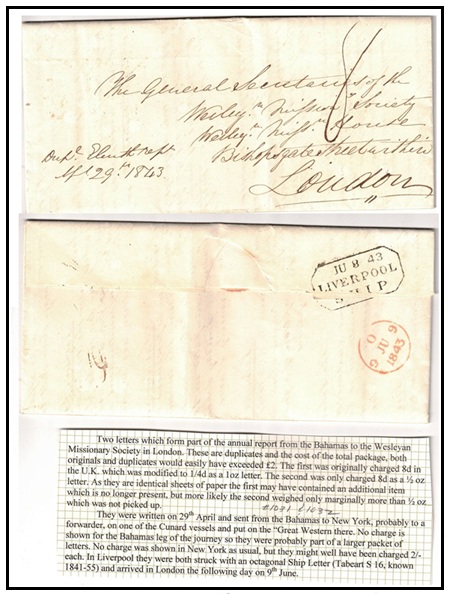 The General Secretaries of the
Wesleyn Mission Society
Wesleyn Missn House
Bishopsgate Street within
London
Apl 29th 1843
8
JU 8 43
LIVERPOOL
SHIP
JU 9
1843
Two letters which form part of the annual report from the Bahamas to the Wesleyan
Missionary Society in London. These are duplicates and the cost of the total package, both
originals and duplicates would easily have exceeded £2. The first was originally charged 8d in
the U.K. which was modified to 1/4d as a 1oz letter. The second was only charged 8d as a ½ oz
letter. As they are identical sheets of paper the first may have contained an additional item
which is no longer present, but more likely the second weighed only marginally more than ½ oz
which was not picked up.
They were written on 29th April and sent from the Bahamas to New York, probably to a
forwarder, on one of the Cunard vessels and put on the "Great Western there. No charge is
shown for the Bahamas leg of the journey so they were probably part of a larger packet of
letters. No charge was shown in New York as usual, but they might well have been charged 2/-
each. In Liverpool they were both struck with an octagonal Ship Letter (Tabeart S 16, known
1841-55) and arrived in London the following day on 9th June.